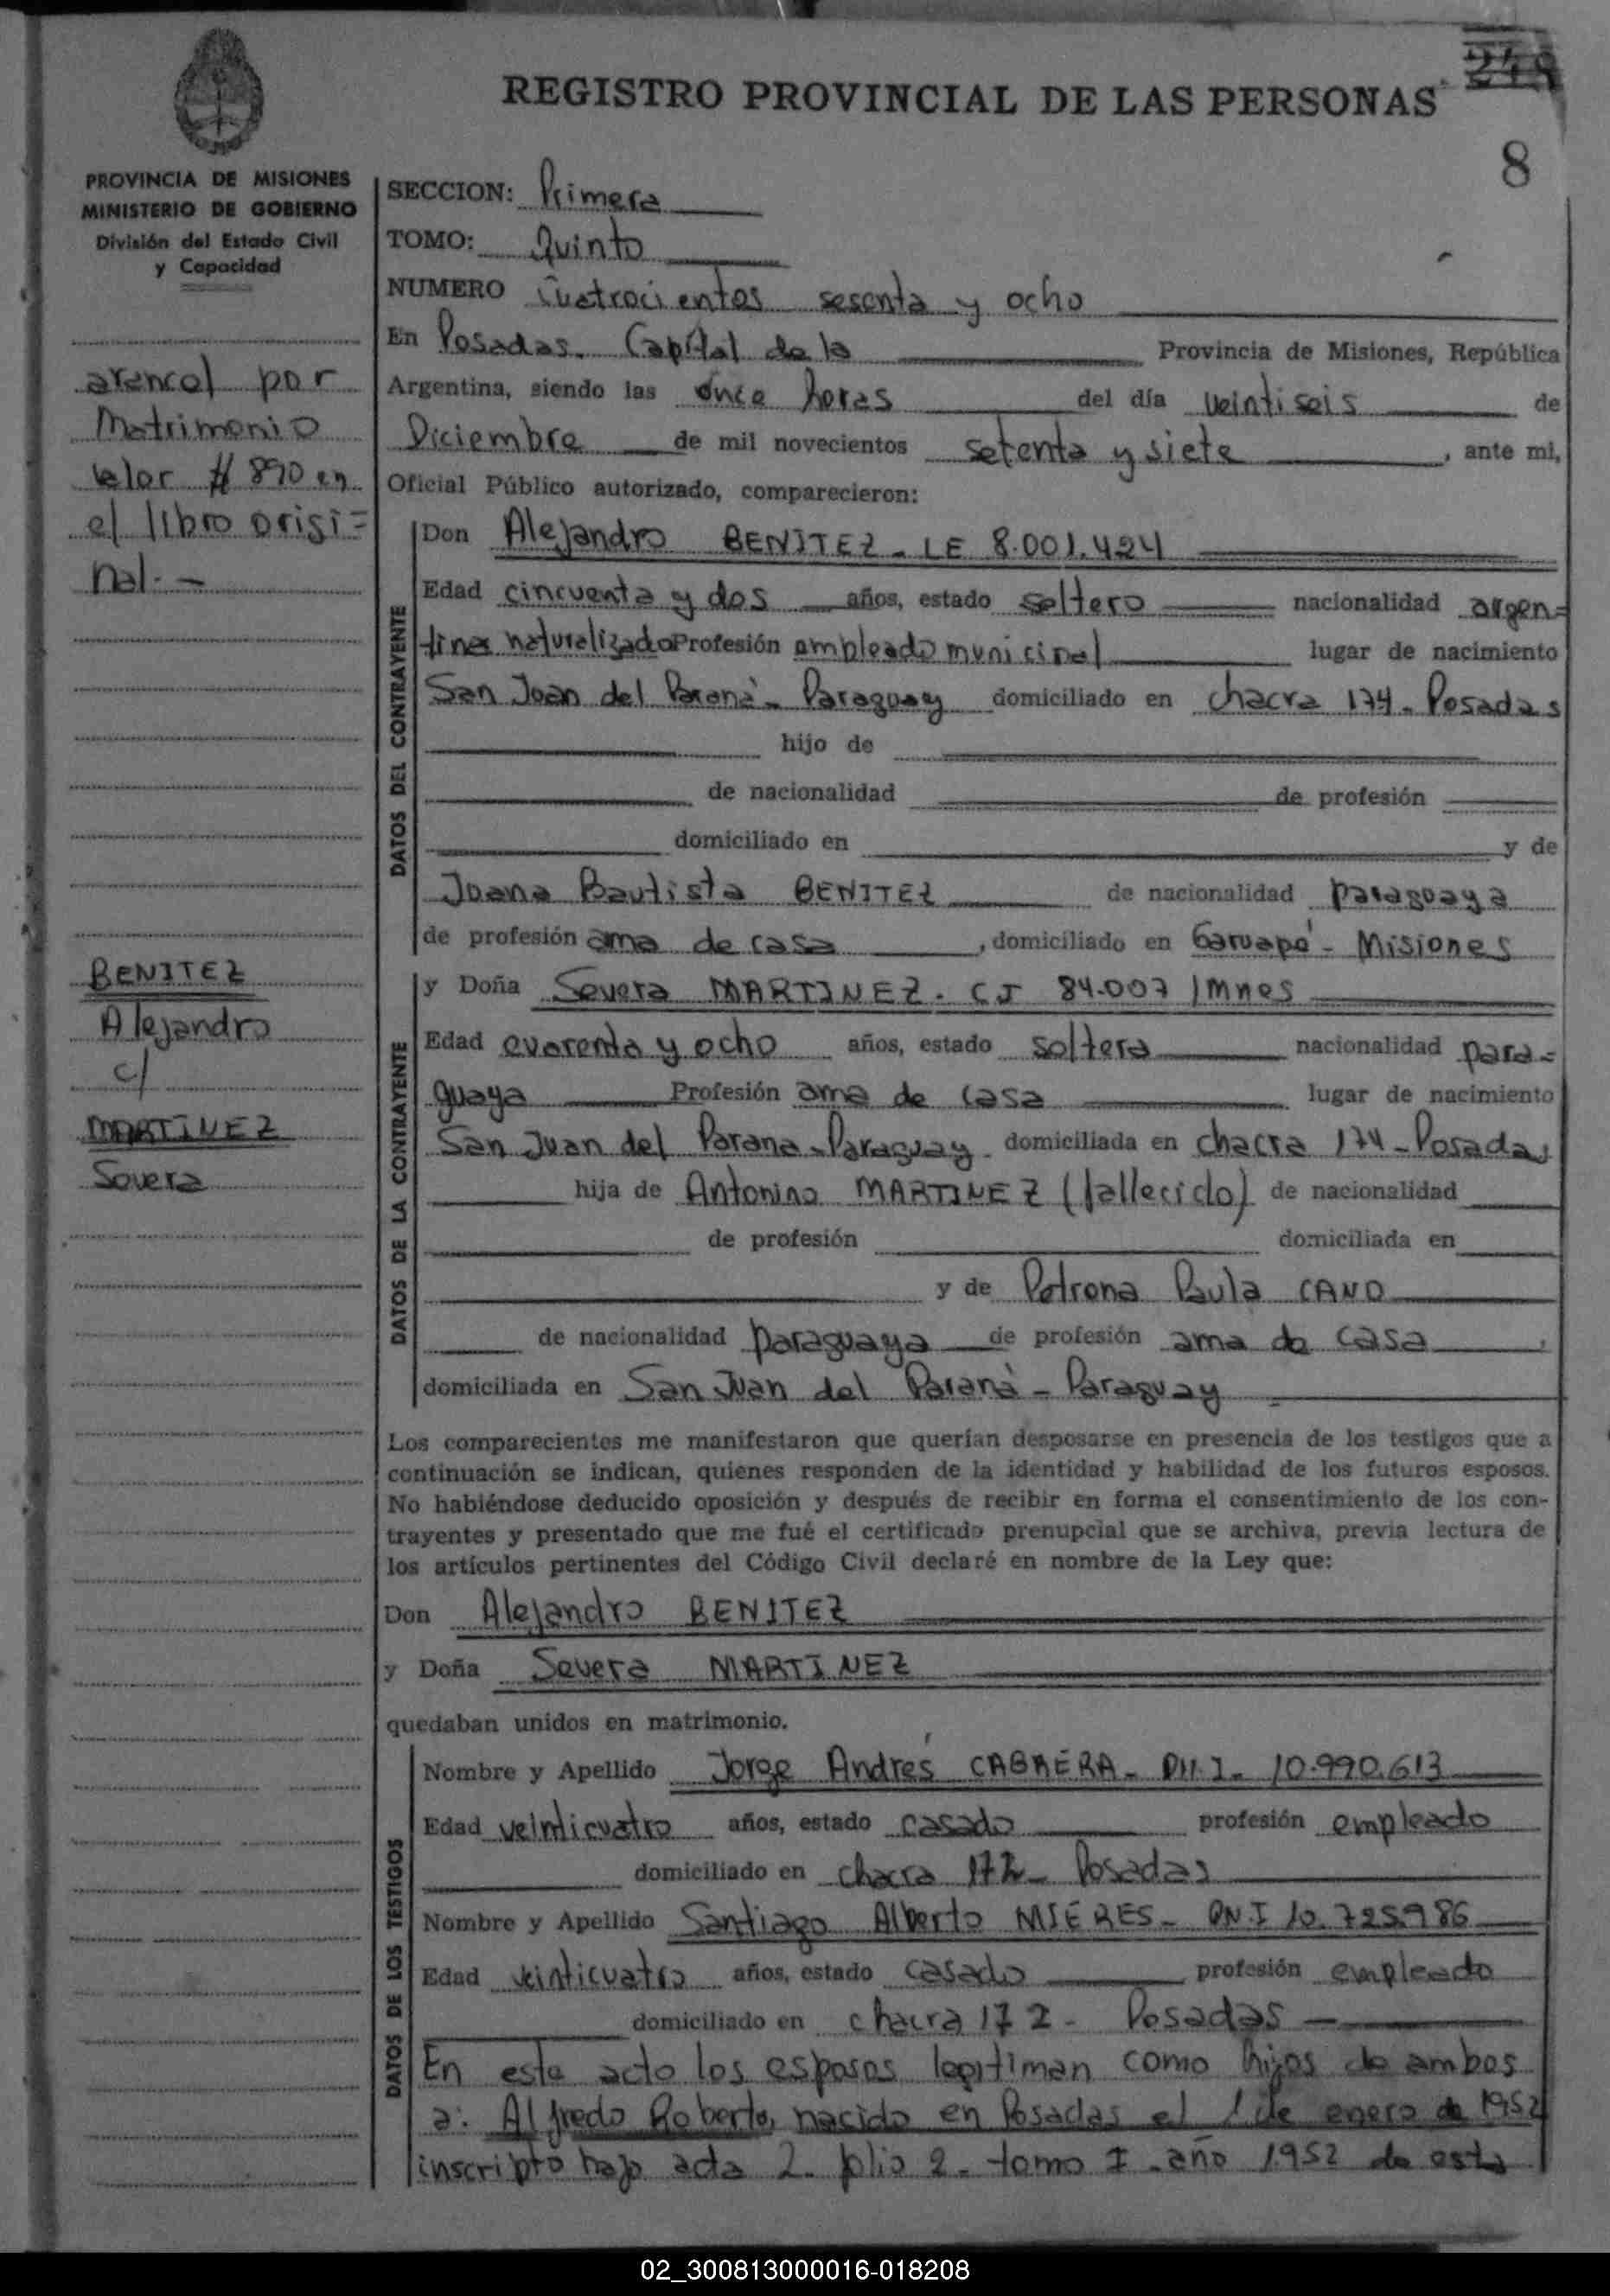 249
REGISTRO PROVINCIAL DE LAS PERSONAS
8
PROVINCIA DE MISIONES
MINISTERIO DE GOBIERNO
División del Estado Civil
y Capacidad
arancel por
Matrimonio
valor $ 890 en
el libro origi=
nal. -
BENITEZ
Alejandro
c/
MARTINEZ
Severa
SECCION: Primera
TOMO: Quinto
NUMERO cuatrocientos sesenta y ocho
En Posadas. Capital de la Provincia de Misiones, República
Argentina, siendo las once horas del día veintiseis de
Diciembre de mil novecientos setenta y siete, ante mi,
Oficial Público autorizado, comparecieron:
DATOS DEL CONTRAYENTE
Don Alejandro BENITEZ - LE 8.001.424
Edad cincuenta y dos años, estado soltero nacionalidad argen=
tino naturalizado Profesión empleado municipal lugar de nacimiento
San Juan del Paraná - Paraguay domiciliado en chacra 174 - Posadas
hijo de
de nacionalidad de profesión
domiciliado en y de
Juana Bautista BENITEZ de nacionalidad paraguaya
de profesión ama de casa, domiciliado en Garuapé - Misiones
DATOS DE LA CONTRAYENTE
y Doña Severa MARTINEZ. CI 84.007 /Mnes
Edad cuarenta y ocho años, estado soltera nacionalidad para=
guaya Profesión ama de casa lugar de nacimiento
San Juan del Parana - Paraguay. domiciliada en chacra 174 - Posadas
hija de Antonino MARTINEZ (fallecido) de nacionalidad
de profesión domiciliada en
y de Petrona Paula CANO
de nacionalidad paraguaya de profesión ama de casa,
domiciliada en San Juan del Paraná - Paraguay
Los comparecientes me manifestaron que querían desposarse en presencia de los testigos que a
continuación se indican, quienes responden de la identidad y habilidad de los futuros esposos.
No habiéndose deducido oposición y después de recibir en forma el consentimiento de los con-
trayentes y presentado que me fué el certificado prenupcial que se archiva, previa lectura de
los artículos pertinentes del Código Civil declaré en nombre de la Ley que:
Don Alejandro BENITEZ
y Doña Severa MARTINEZ
quedaban unidos en matrimonio.
DATOS DE LOS TESTIGOS
Nombre y Apellido Jorge Andrés CABRERA - DN.I - 10.990.613
Edad veinticuatro años, estado casado profesión empleado
domiciliado en chacra 172 - Posadas
Nombre y Apellido Santiago Alberto MIERES - DN.I 10.725.986
Edad veinticuatro años, estado casado profesión empleado
domiciliado en chacra 172 - Posadas -
En este acto los esposos legitiman como hijos de ambos
a: Alfredo Roberto, nacido en Posadas el 1 de enero de 1952
inscripto bajo acta 2 - folio 2 - tomo I - año 1952 de esta
02_300813000016-018208